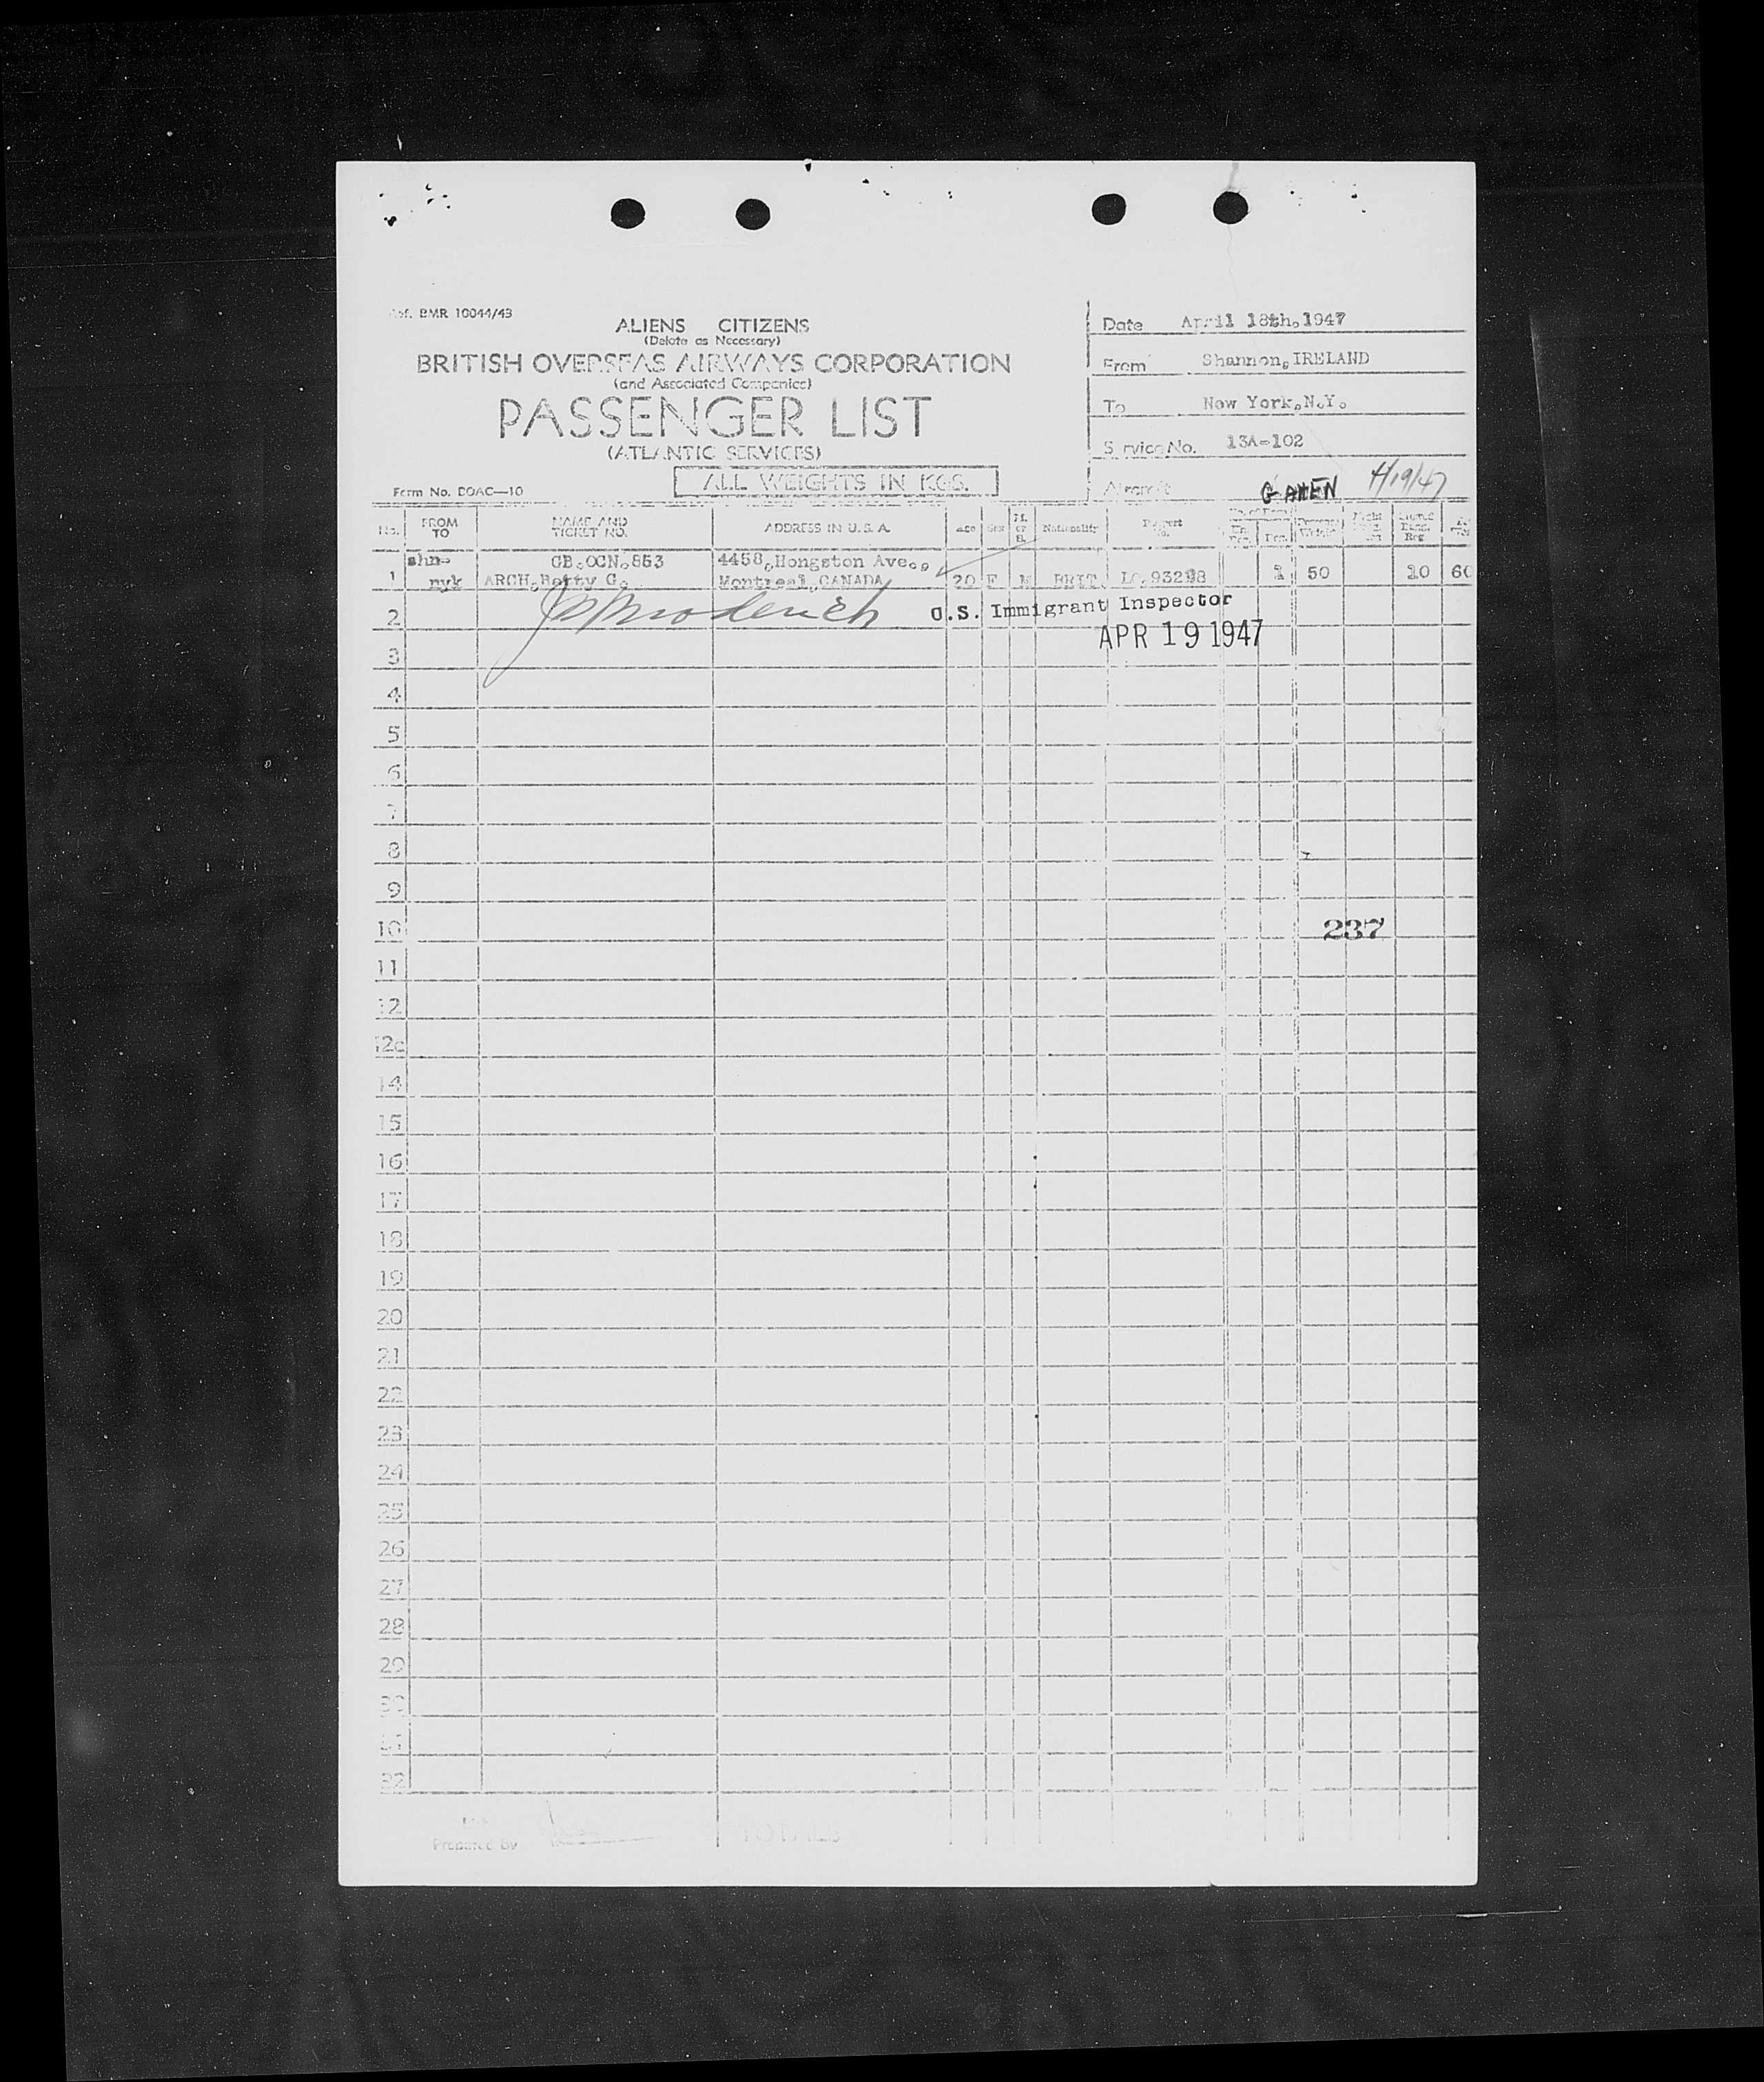 Ref. BMR 10044/43
ALIENS CITIZENS
(Delete as Necessary)
BRITISH OVERSEAS AIRWAYS CORPORATION
(and Associated Companies)
PASSENGER LIST
(ATLANTIC SERVICES)
ALL WEIGHTS IN KGS.
Form No. BOAC—10
Date April 18th.1947
From Shannon, IRELAND
To New York.N.Y.
Service No. 13A-102
Aircraft G-AHEN 4/19/47
No. FROM TO NAME AND TICKET NO. ADDRESS IN U.S.A. Age Sex M. or S. Nationality Passport No.
shn- GB.OCN.853 4458,Hongston Ave.,
1 nyk ARCH,Betty G. Montreal,CANADA 20 F BRIT. LO.93298 1 50 10 60
2 U.S. Immigrant Inspector
APR 19 1947
3
4
5
6
7
8
9
10 237
11
12
12c
14
15
16
17
18
19
20
21
22
23
24
25
26
27
28
29
30
31
32
Prepared by